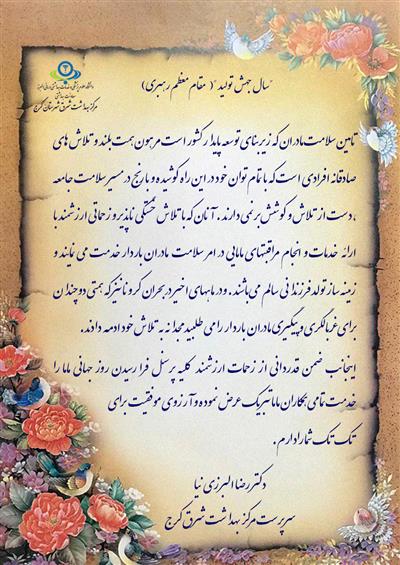 "سال جهش تولید" ( مقام معظم رهبری )
مرکز بهداشت شرق شهرستان کرج
تامین سلامت مادران که زیربنای توسعه پایدار کشور است مرهون همت بلند و تلاش های
صادقانه افرادی است که با تمام توان خود در این راه کوشیده و با رنج در مسیر سلامت جامعه
، دست از تلاش و کوشش برنمی دارند . آنان که با تلاش خستگی ناپذیر و زحماتی ارزشمند با
ارائه خدمات و انجام مراقبتهای مامایی در امر سلامت مادران باردار خدمت می نمایند و
زمینه ساز تولد فرزندانی سالم می باشند . و در ماههای اخیر در بحران کرونا نیز که همتی دوچندان
برای غربالگری و پیگیری مادران باردار را می طلبید مجدانه به تلاش خود ادمه دادند.
اینجانب ضمن قدردانی از زحمات ارزشمند کلیه پرسنل فرا رسیدن روز جهانی ماما را
خدمت تمامی همکاران ماما تبریک عرض نموده و آرزوی موفقیت برای
تک تک شما را دارم .
دکتر رضا البرزی نیا
سرپرست مرکز بهداشت شرق کرج